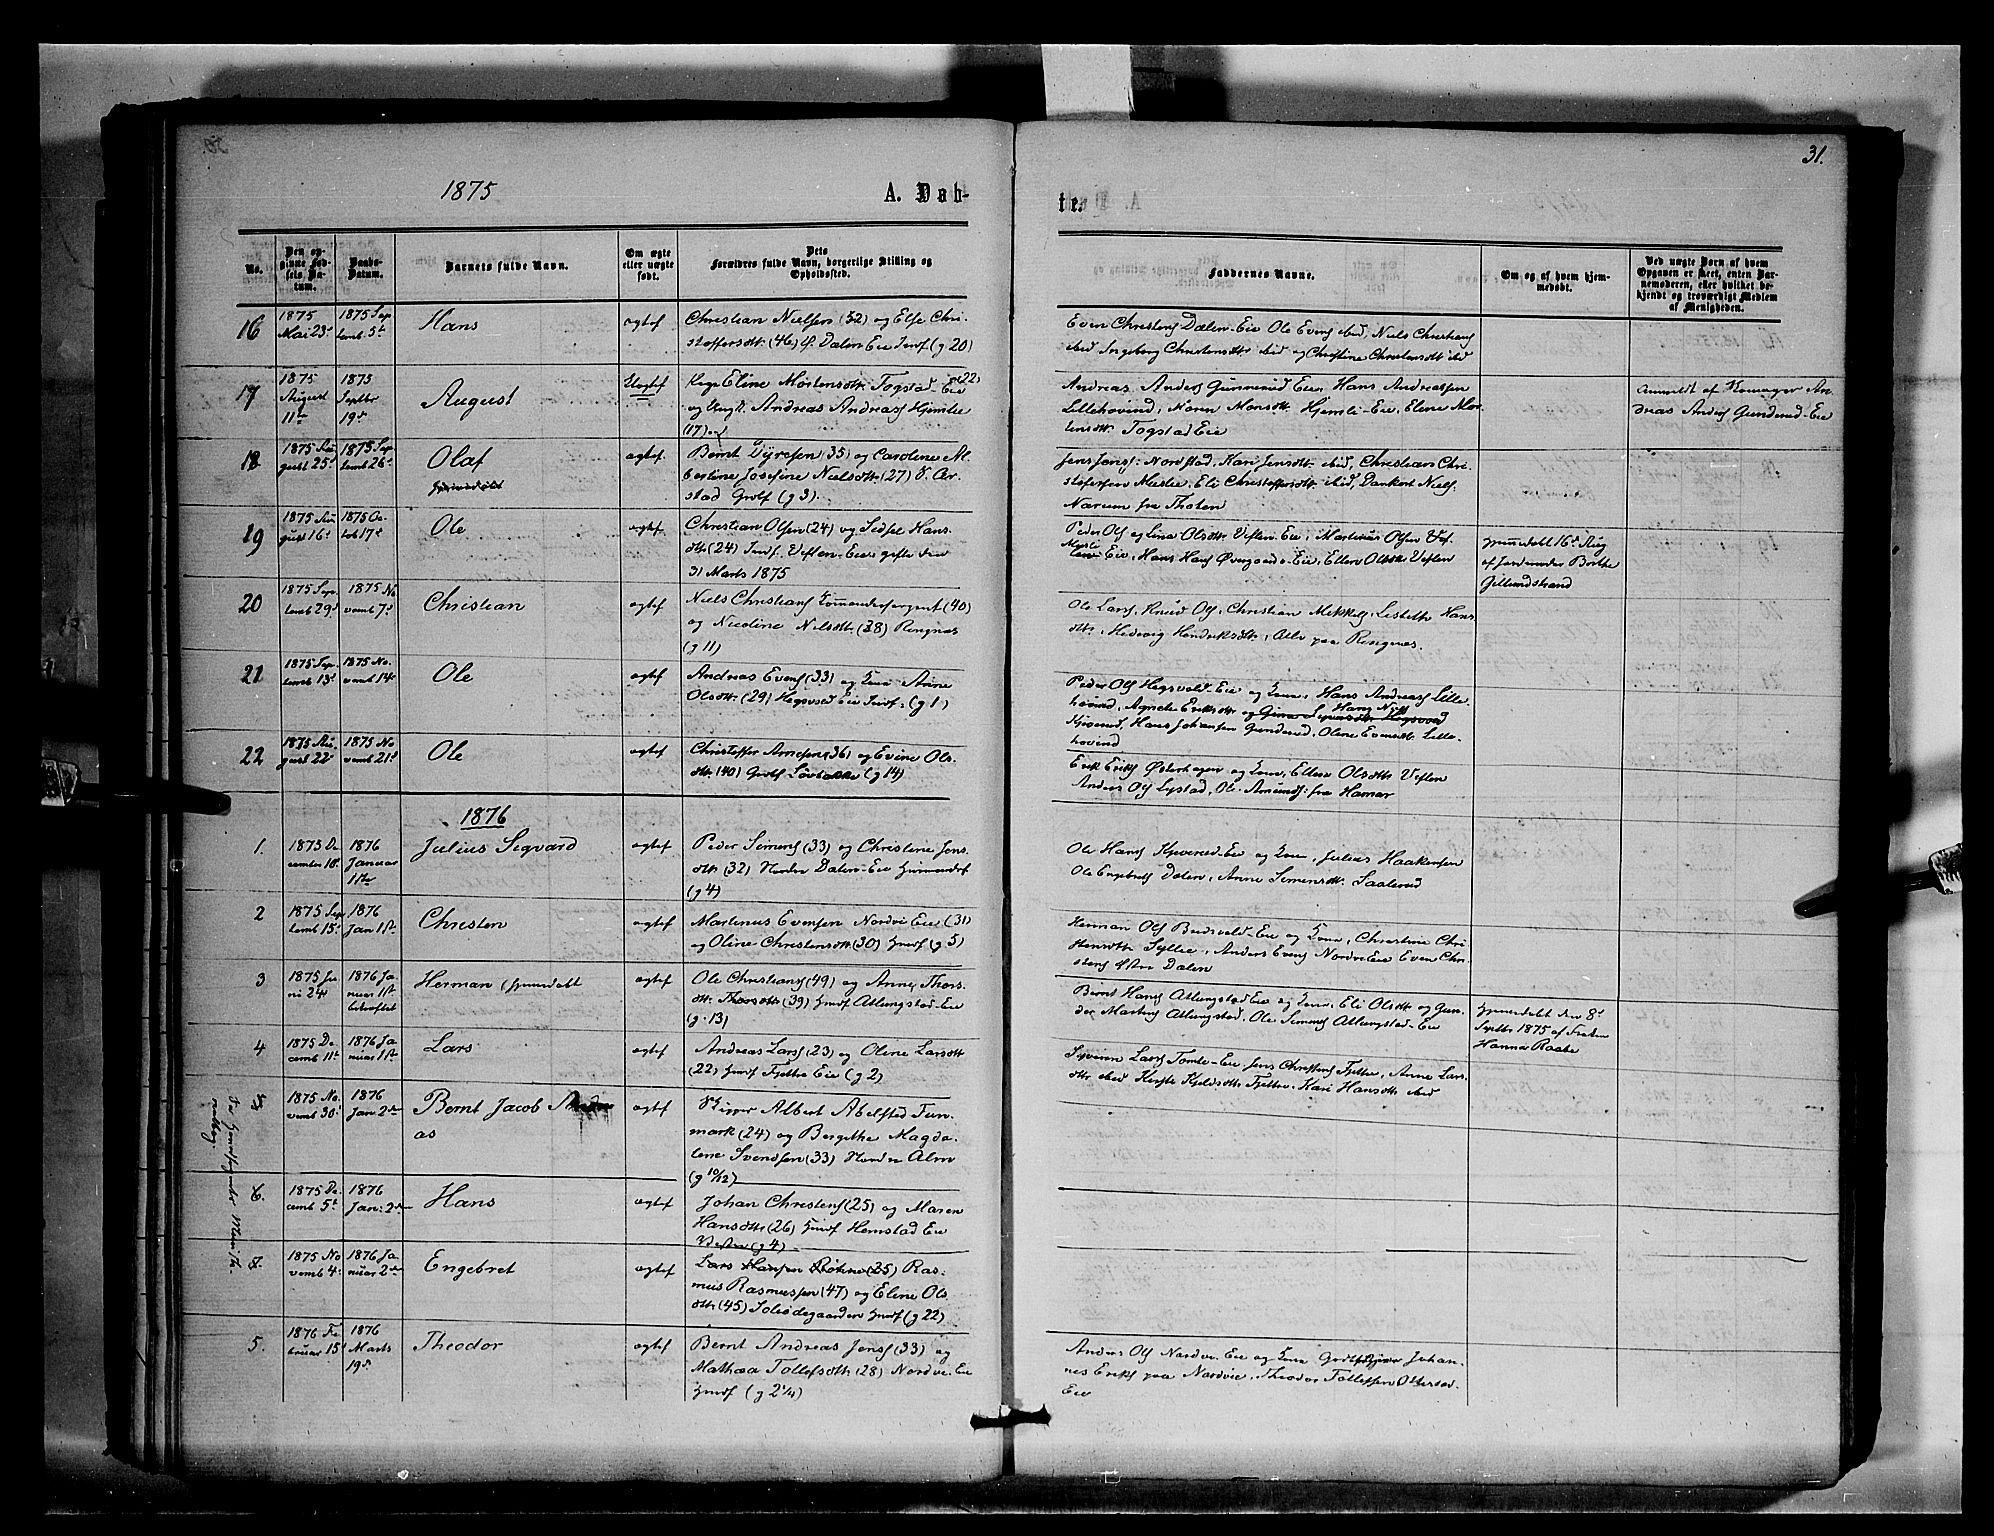 31.
1875
A. Døb-
te.
No.
Den op-
ginne Fød-
sels Da-
tum.
Daabs-
Datum.
Barnets fulde Navn.
Om ægte
eller uægte
født.
Dets
Forældres fulde Navn, borgerlige Stilling og
Opholdssted.
Faddernes Navne.
Om og af hvem hjem-
medøbt.
Ved uægte Børn af hvem
Opgaven er skeet, enten Bar-
nemoderen, eller hvilket be-
kjendt og troværdigt Medlem
af Menigheden.
16
1875
Mai 23
1875 Sep
temb 5t
Hans
ægtef
Christian Nielsen (52) og Else Chri-
stoffersdtr (46) Dalen Eie Indf (g 20)
Even Christens Dalen-Eie Ole Evens ibid, Niels Christians
ibid Ingeborg Christensdtr ibid og Christine Christensdtr ibid
17
1875
August
11te
1875
Septbr
19de
August
Uægtef
Pige Eline Mortensdtr Togstad Eie (22)
og Ungk. Andreas Andreass Hjemlie
(17)
Andreas Anders Gunnerud Eie, Hans Andreassen
Lillehovind, Maren Monsdtr Hjemli-Eie, Elene Mor
tensdtr Togstad Eie
Anmeldt af Andreas Anders Gunderud-Eie
18
1875 Au
gust 25
1875 Sep
temb 26
Olaf
ægtef
Bernt Dyresen (35) og Caroline Al
bertine Josefine Nielsdtr (27)
stad (g 3)
Jens Jens Nordstad, Kari Jensdtr ibid, Christian Chri-
stofersen Mælie, Eli Christoffersdtr ibid, Dankert Niels
Narum fra Thoten
19
1875 Au
gust 16
1875 Oc
tob 17
Ole
ægtef
Christian Olsen (24) og Sidsel Hans
dtr (24) Indf. Veflen-Eie; gifte den
31 Marts 1875
Peder Ols og Lina Olsdtr Veflen-Eie, Martinus Olsen
Eie, Hans Hans Øvergaard-Eie, Ellen Olsdtr Veflen
hjemmedøbt 16 Aug
af Jordemoder Borthe
Gillundstrand
20
1875 Sep
temb 29
1875 No
vemb 7
Christian
ægtef
Niels Christians Commandersergent (40)
og Nicoline Nilsdtr (38) Rengnes
(g 11)
Ole Lars, Knud Ols, Christian Mikkels, Lisbeth Hans
dtr, Hedevig Hendriksdtr, Alle paa Rengnes.
21
1875 Sep
temb 13
1875 No
vemb 14
Ole
ægtef
Andreas Evens (33) og Kone Anne
Olsdtr (29) Hegsvold Eie Indf. (g 1)
Peder Ols Hegsvold-Eie og Kone, Hans Andreass Lille
hovind, Agnete Eriksdtr og Hans Nils
Kjverud, Hans Johansen Gunderud, Oline Evensdtr Lille-
hovind
22
1875 Au
gust 22
1875 No
vemb 21
Ole
ægtef
Christoffer Arnesen (36) og Evine Ols
dtr (40) (g 14)
Erik Eriks Østerhagen og Kone, Ellen Olsdtr Veflen
Anders Ols Lystad, Ole Amunds fra Hamar
1876
1.
1875 De
cember 10
1876
Januar
11te
Julius Sigvard
ægtef
Peder Simens (33) og Christine Jens
dtr (32) Nordre Dalen-Eie Huusmandsf
(g 4)
Ole Hans Kjverud-Eie og Kone, Julius Haakensen
Ole Engebrets Dalen, Anne Simensdtr Saalerud
2
1875 Sep
temb 15
1876
Jan 1st
Christen
ægtef
Martinus Evensen Nordvi Eie (31)
og Oline Christensdtr (30) Huusf (g 5)
Herman Ols Budsvold-Eie og Kone, Christine Chri
stensdtr Syllie, Anders Evens Nordvi Eie Even Chri
stens Østre Dalen
3
1875 Ju
ni 24
1876 Ja
nuar 1st
Herman hjemmedøbt
ægtef
Ole Christians (49) og Anne Thors
dtr (39) Huusf Atlungstad-Eie
(g. 13)
Bernt Hans Atlungstad Eie og Kone, Eli Olsdtr og Gun
der Martins Atlungstad. Ole Simens Atlungstad-Eie
hjemmedøbt den 8
Septbr 1875 af
Hanna Raabe
4
1875 De
cemb 11
1876 Ja
nuar 1st
Lars
ægtef
Andreas Lars (23) og Oline Larsdtr
(22) Huusf Fjetre Eie (g 2)
Syveren Lars Tomte-Eie, Jens Christens Fjetre, Anne Lars
dtr ibid Kirste Kjeldsdtr Fjetre, Kari Hansdtr ibid
1875 No
vemb 30
1876
Jan 2den
Bernt Jacob Andre
as
ægtef
Albert Abelsted Fun
mark (24) og Bergithe Magda
lene Svendsen (33) Nordre Alm
(g 10/12)
6.
1875 De
cemb 5
1876
Jan: 2den
Hans
ægtef
Johan Christens (25) og Maren
Hansdtr (26) Huusf Hemstad Eie
Vestre (g 4)
7.
1875 No
vemb 4
1876 Ja
nuar 2den
Engebret
ægtef
Lars Hansen Røhne (25) Ras
mus Rasmussen (47) og Elene Ols
dtr (45) Solisødegaarden Huusf (g 22)
5.
1876 Fe
bruar 15
1876
Marts
19
Theodor
ægtef
Bernt Andreas Jens (33) og
Mathea Tollefsdtr (28) Nordvi Eie
Huusf (g 2 1/4)
Anders Ols Nordvi-Eie og Kone Johan-
nes Eriks paa Nordvie, Theodor Tollefsen Ottestad-
Eie